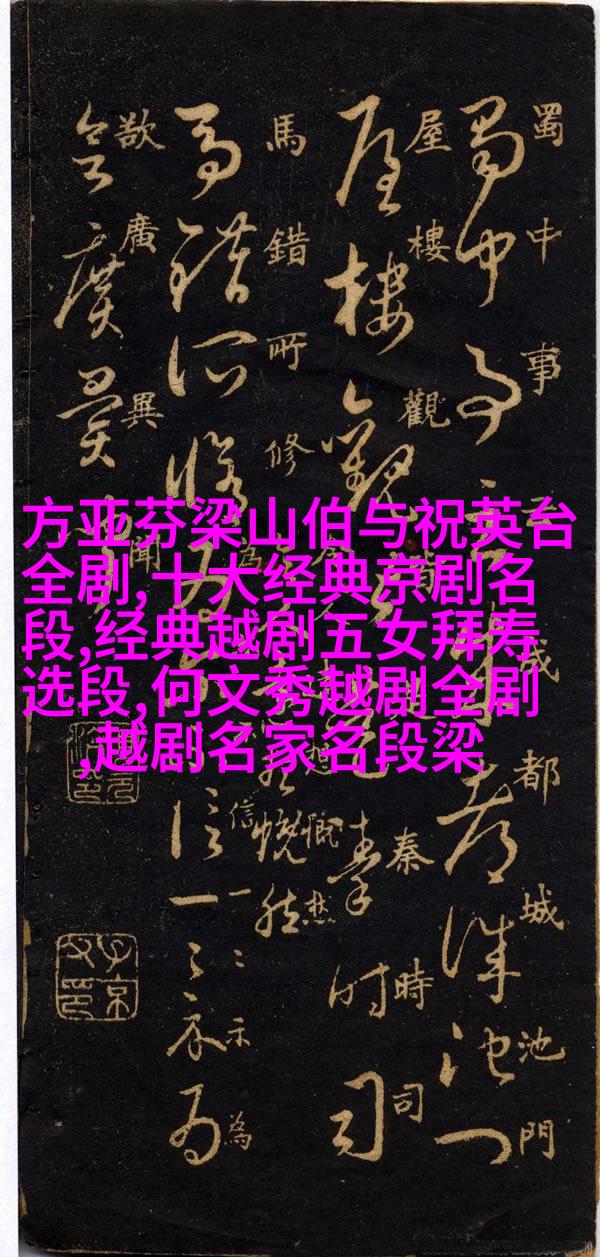 方亚芬梁山伯与祝英台
全剧,十大经典京剧名
段,经典越剧五女拜寿
选段,何文秀越剧全剧
,越剧名家名段梁
蜀中事云成都城池門
屋樓觀皆秦時司
馬錯所修慨然
為信一一示為
欲廣異聞